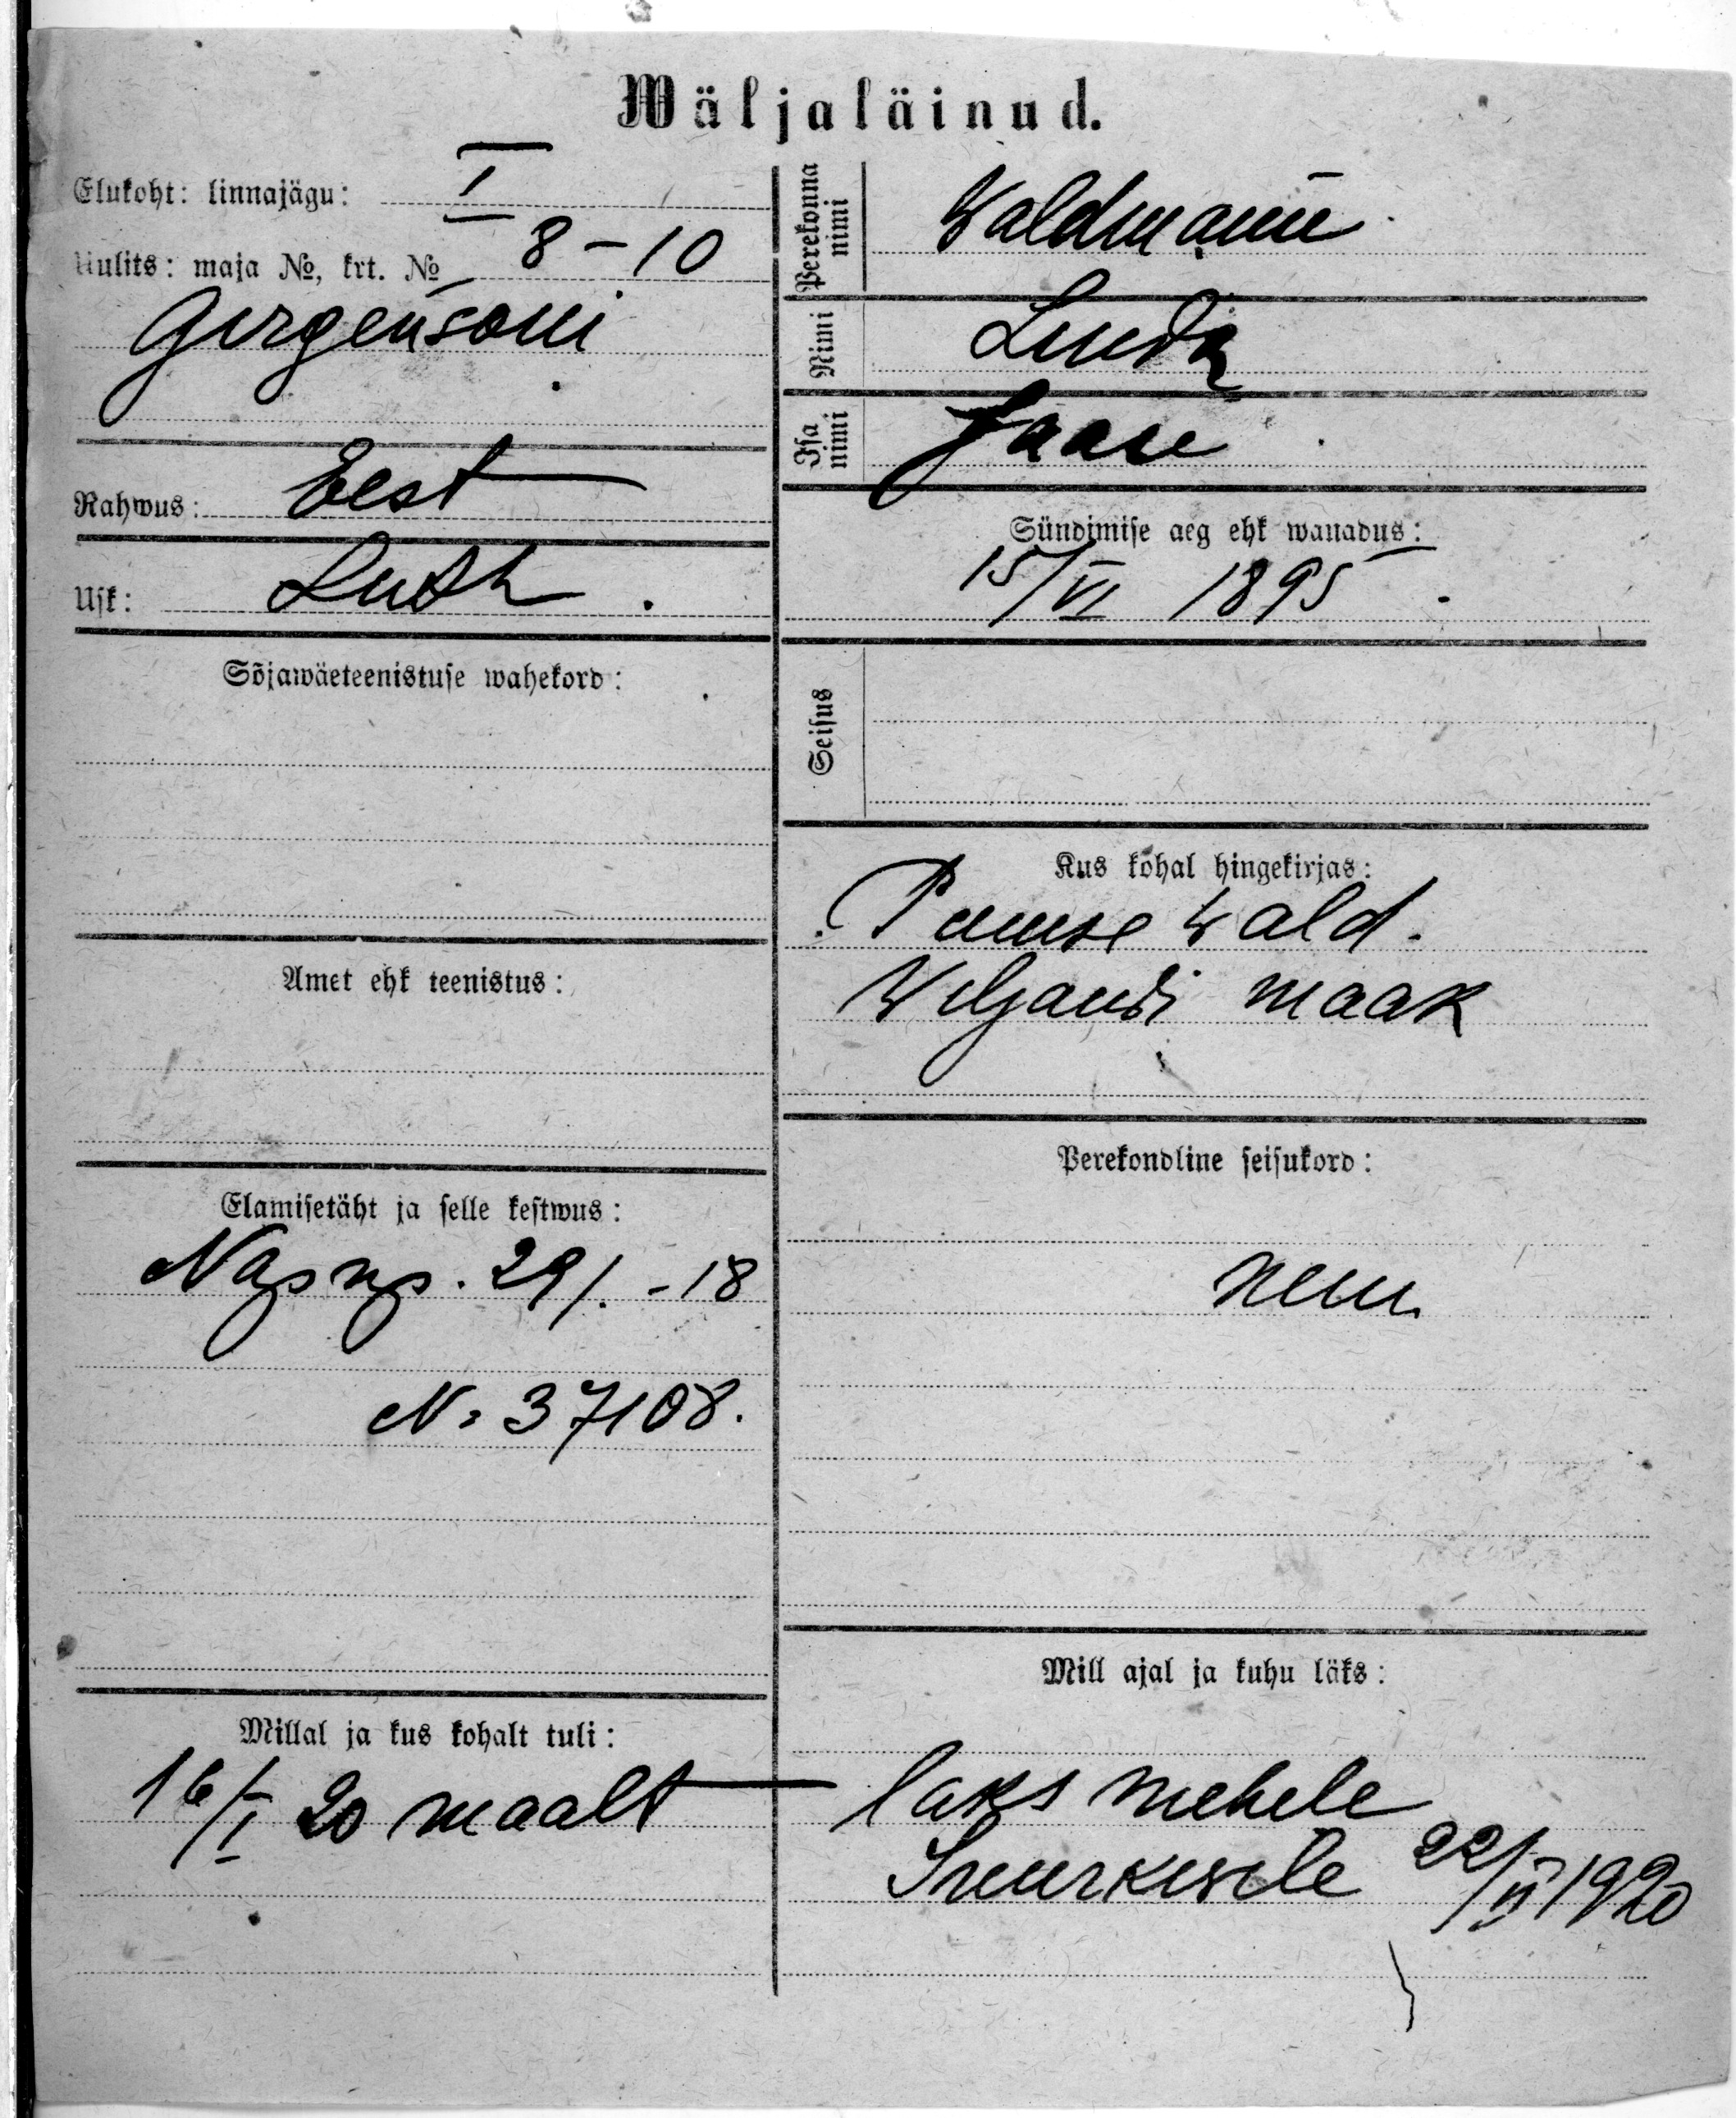 Wäljaläinud.
Elukoht: linnajägu: I
Uulits: maja №, krt. № 8-10
Girgensoni
Rahwus: Eest
Usk: Luth.
Sõjawäeteenistuse wahekord:
Amet ehk teenistus:
Elamisetäht ja selle kestwus:
29/. -18
N: 37108.
Millal ja kus kohalt tuli:
16/I 20 maalt
Perekonna nimi Waldmann
Nimi Linda
Isa nimi Jaan
Sündimise aeg ehk wanadus:
15/VI 1895.
Seisus
Kus kohal hingekirjas:
wald.
Wiljandi maak
Perekondline seisukord:
neiu
Mill ajal ja kuhu läks:
läks mehele
22/II 1920